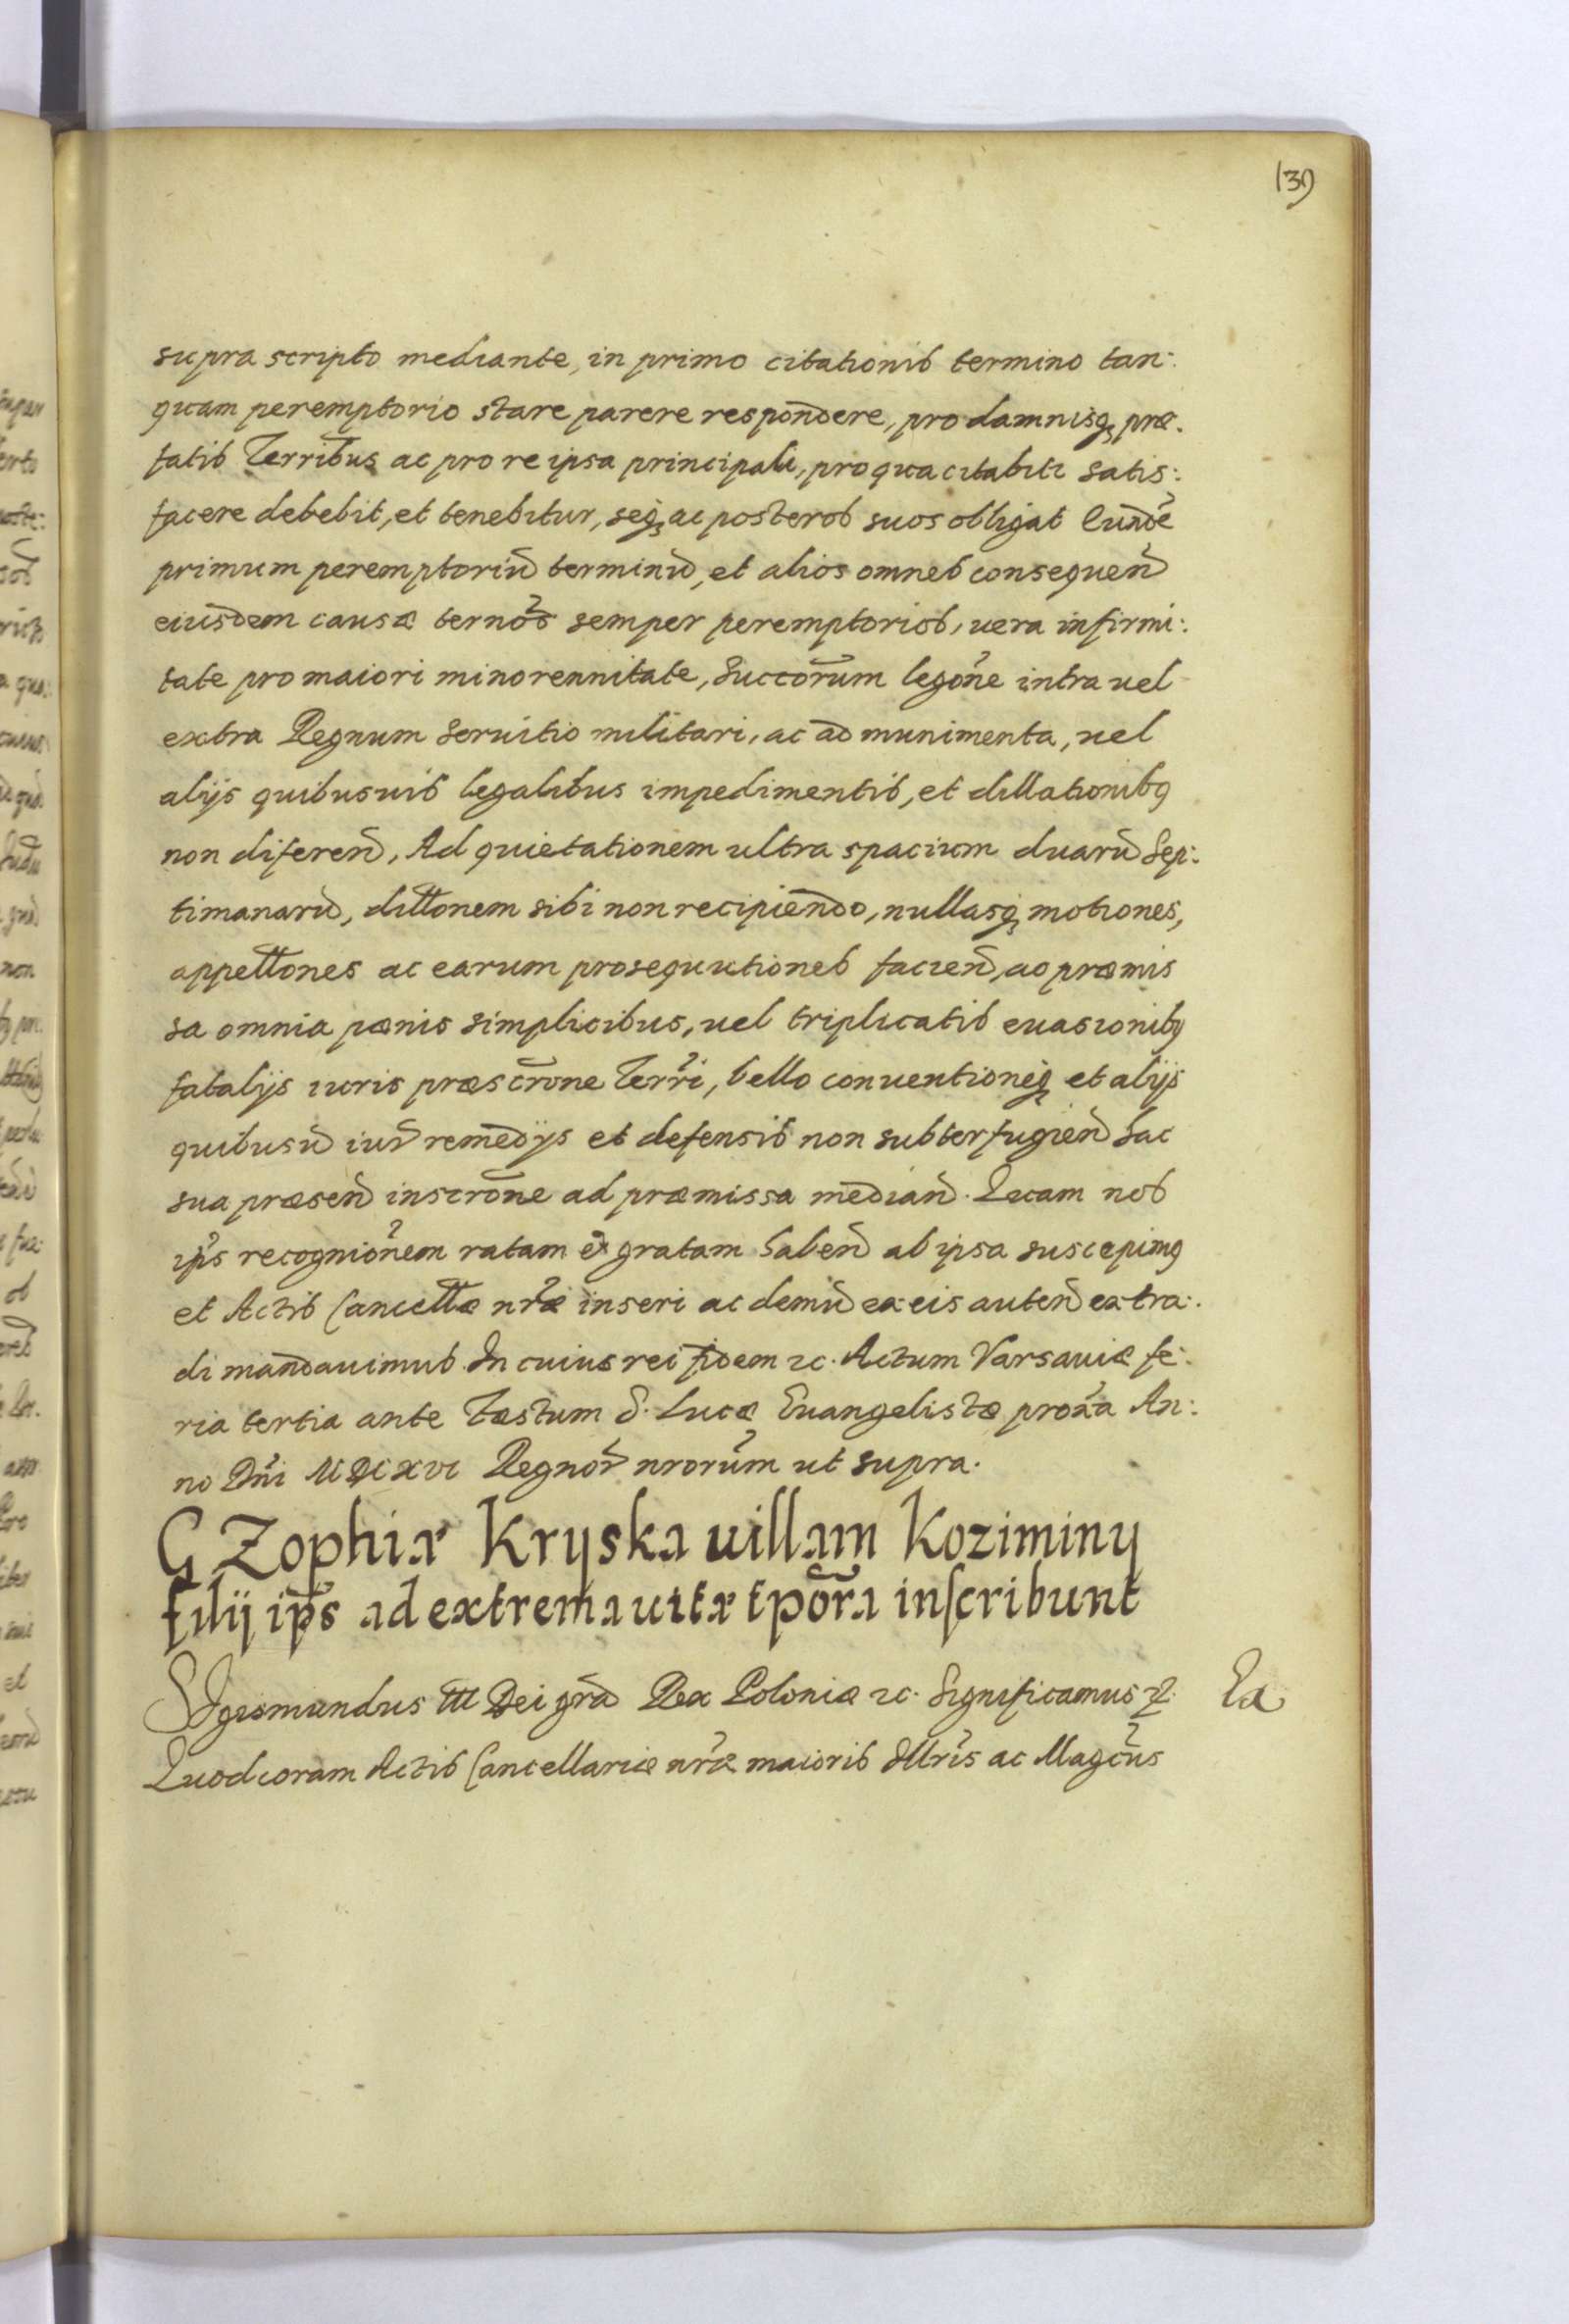 139
supra scripto mediante, in primo citationis termino tan:
quam peremptorio stare parere respondere, pro damnisq præ.
fatis Terribus ac pro re ipsa principali, pro qua citabitr satis:
facere debebit, et tenebitur, seq ac posteros suos obligat hunde
primum peremptoriū terminū, et alios omnes consequen
eiusdem causæ ternos semper peremptorios, uera infirmi:
tate pro maiori minorennitate, Succorum legone intra uel
extra Regnum Seruitio militari, ac ad munimenta, uel
alijs quibusuis legalibus impedimentis, et dillationibq
non diferen, Ad quietationem ultra spacium duarū Sep:
timanarū, dillonem sibi non recipiendo, nullasq motiones,
appellones ac earum prosequutiones facien, ac præmis
sa omnia pænis simplicibus, uel triplicatis euasionibq
fatalijs iuris præscrone Terri, bello conuentioneq et alijs
quibusū iur remedijs et defensis non subterfugien hac
sua præsen inscrone ad præmissa median. Quam nos
ips recognionem ratam et gratam haben ab ipsa suscepimq
et Actis Cancellæ nræ inseri ac demū ex eis auten extra:
di mandauimus. In cuius rei fidem zc. Actum Varsauiæ fe:
ria tertia ante Festum S. Lucæ Euangelistæ proxa An:
no Dni MDCXVI Regnor nrorum ut supra.
G Zophiæ Kryska uillam Koziminy
filij ips ad extrema uitæ tpora inscribunt
Sigismundus III Dei gra Rex Poloniæ zc. Significamus zc.
Quod coram Actis Cancellariæ nræ maioris Illris ac Magcus
Ea